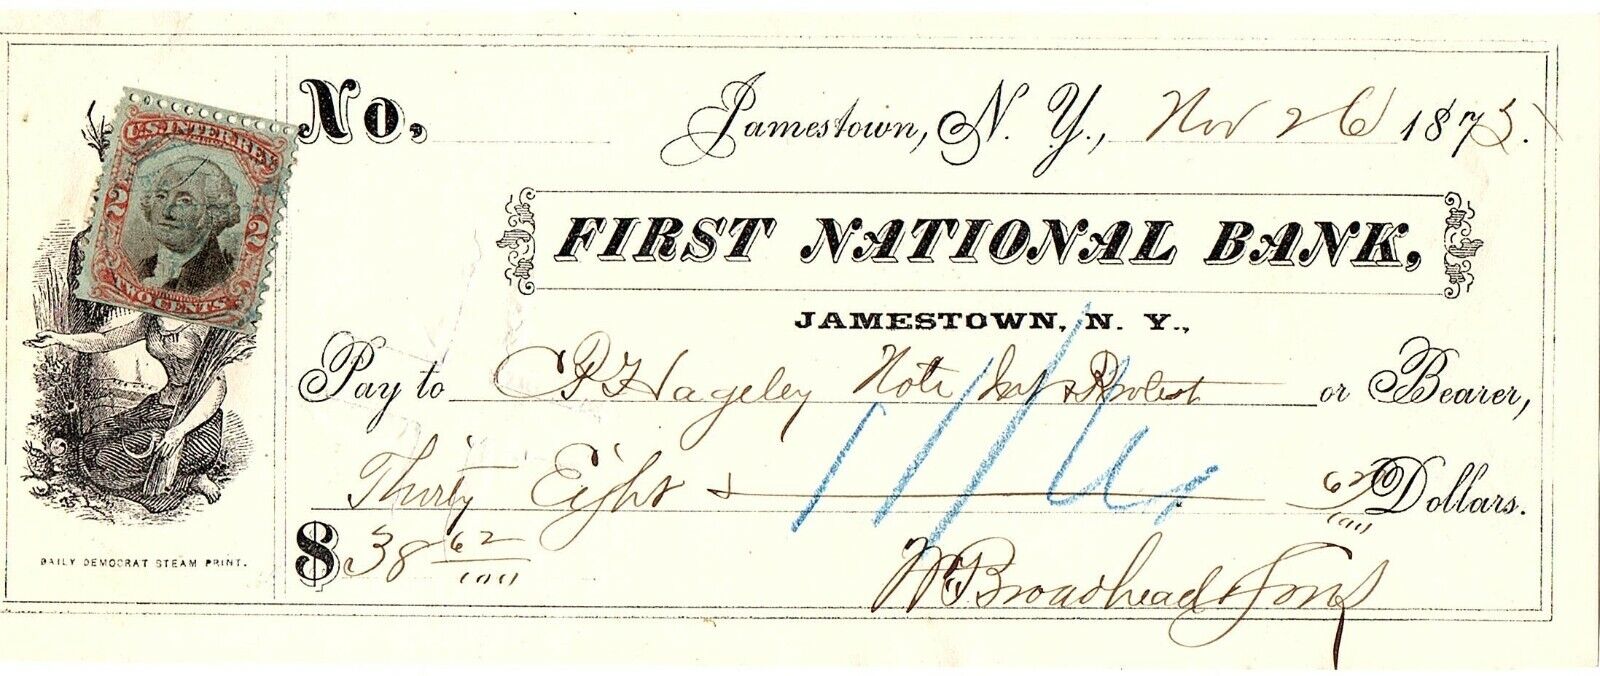 No. Jamestown, N. Y., Nov 26 1873.
U.S. INTER. REV.
2 2
TWO CENTS
FIRST NATIONAL BANK,
JAMESTOWN, N. Y.,
Pay to Hageley Note Int & Protest or Bearer,
Thirty Eight & 62/100 Dollars.
$ 38 62/100
DAILY DEMOCRAT STEAM PRINT.
Wm Broadhead & Sons